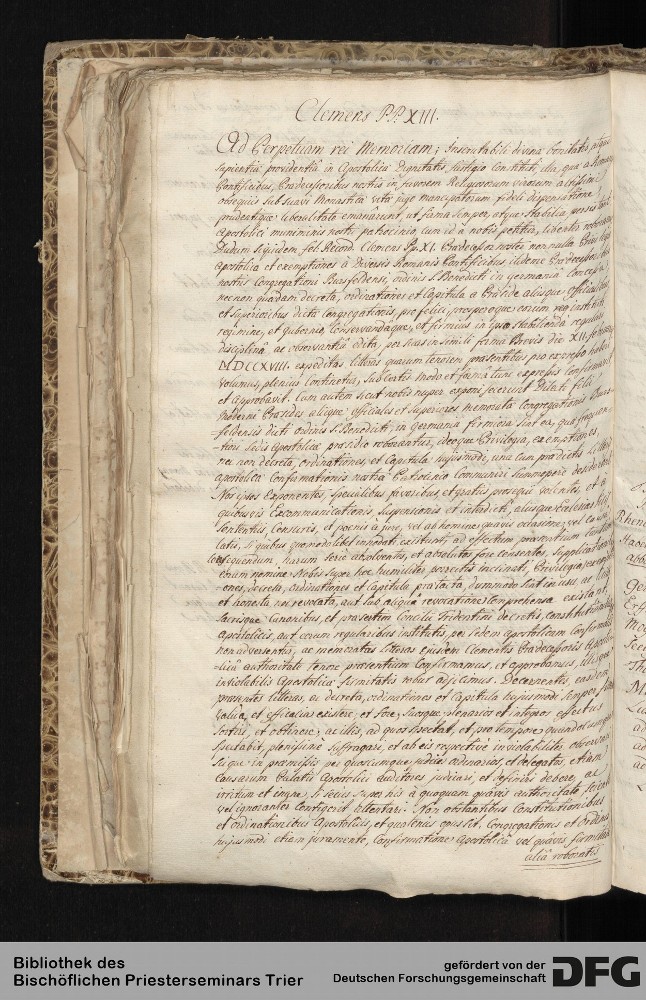 Clemens P.P. XIII.
Ad Perpetuam rei Memoriam; Inscrutabili divinæ bonitatis atque
Sapientiæ providentiâ in Apostolicæ Dignitatis fastigio Constituti, illa, quæ a Romanis
Pontificibus, Prædecessoribus nostris in favorem Religiosorum virorum altissimi
obsequiis sub suavi Monasticæ vitæ jugo mancipatorum fideli dispensatione,
prudentique liberalitate emanârunt, ut firma semper, atque stabilia persistant
Apostolici muniminis nostri patrocinio, cum id a nobis petitur, libenter roboramus
Dudum siquidem fel: Record: Clemens P.p. XI. Prædecessor noster non nulla Privilegia
Apostolica et exemptiones à Diversis Romanis Pontificibus itidem Prædecessoribus
nostris Congregationi Bursfeldensi, ordinis S. Benedicti in germania Concessa
nec non quædam decreta, ordinationes et Capitula a Præside aliisque officialibus
et Superioribus dictæ Congregationis, pro felici, prosperoque eorum regiminis
regimine, et gubernio, Conservandaque, et firmius in ipsa stabilienda regulari
disciplinâ, ac observantiâ edita, per suas in simili formâ Brevis die XII.
MDCCXVIII. expeditas litteras quarum tenorem præsentibus pro expresso haberi
volumus, plenius Continetur, sub certis modo et formâ tunc expressis Confirmavit
et approbavit. Cum autem sicut nobis nuper exponi fecerunt Dilecti filii
moderni Præsides aliique officiales et Superiores memoratæ Congregationis Burs-
-feldensis dicti ordinis S. Benedicti, in germania firmiora sint ea, quæ frequen-
-tiori Sedis Apostolicæ præsidio roborantur, ideoque Privilegia, exemptiones,
nec non decreta, ordinationes, et Capitula hujusmodi, una Cum prædictis litteris
Apostolicæ Confirmationis nostræ Patrocinio Communiri Summopere desiderant
Nos ipsos Exponentes, specialibus favoribus et gratiis prosequi volentes, et a
quibusvis Excommunicationis, Suspensionis et interdicti, aliisque Ecclesiasticis
sententiis, Censuris, et poenis à jure, vel ab homine quavis occasione, vel causa
latis, si quibus quomodolibet innodati existunt, ad effectum præsentium duntaxat
Consequendum harum serie absolventes, et absolutos fore censentes, supplicationibus
eorum nomine Nobis super hoc humiliter porrectis inclinati, Privilegia, exempti-
-ones, decreta, ordinationes et Capitula præfata, dummodo sint in usu, ac licita
et honesta, nec revocata, aut sub aliqua revocatione Comprehensa existant,
Sacrisque Canonibus, et præsertim Concilii Tridentini decretis, constitutionibus
Apostolicis, aut eorum regularibus institutis, per sedem Apostolicam Confirmatis
non adversentur, ac memoratas litteras ejusdem Clementis Prædecessoris Aposto-
-licâ authoritate tenore præsentium Confirmamus, et approbamus, illisque
inviolabilis Apostolicæ firmitatis robur adjicimus. Decernentes, easdem
præsentes litteras, ac decreta, ordinationes et Capitula hujusmodi semper,
valida, et efficacia existere, et fore, suosque plenarios et integros effectus
sortiri, et obtinere, ac illis, ad quos spectat, et pro tempore quandocumque
spectabit, plenissime suffragari, et ab eis respective inviolabiliter observari
Sicque in præmissis per quoscumque judices ordinarios, et delegatos, etiam
Causarum Palatii Apostolici auditores judicari, et definiri debere, ac
irritum et inane, si secus super his à quoquam quavis authoritate scienter
vel ignoranter Contigerit attentari. Non obstantibus Constitutionibus
et ordinationibus Apostolicis, et quatenus opus sit, Congregationis et ordinis
hujusmodi etiam juramento, Confirmatione Apostolicâ vel quavis firmitate
aliâ roboratis
Bibliothek des
Bischöflichen Priesterseminars Trier
gefördert von der
Deutschen Forschungsgemeinschaft
DFG